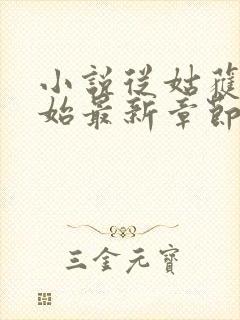 小說從姑獲
始最新章節
三金元寶